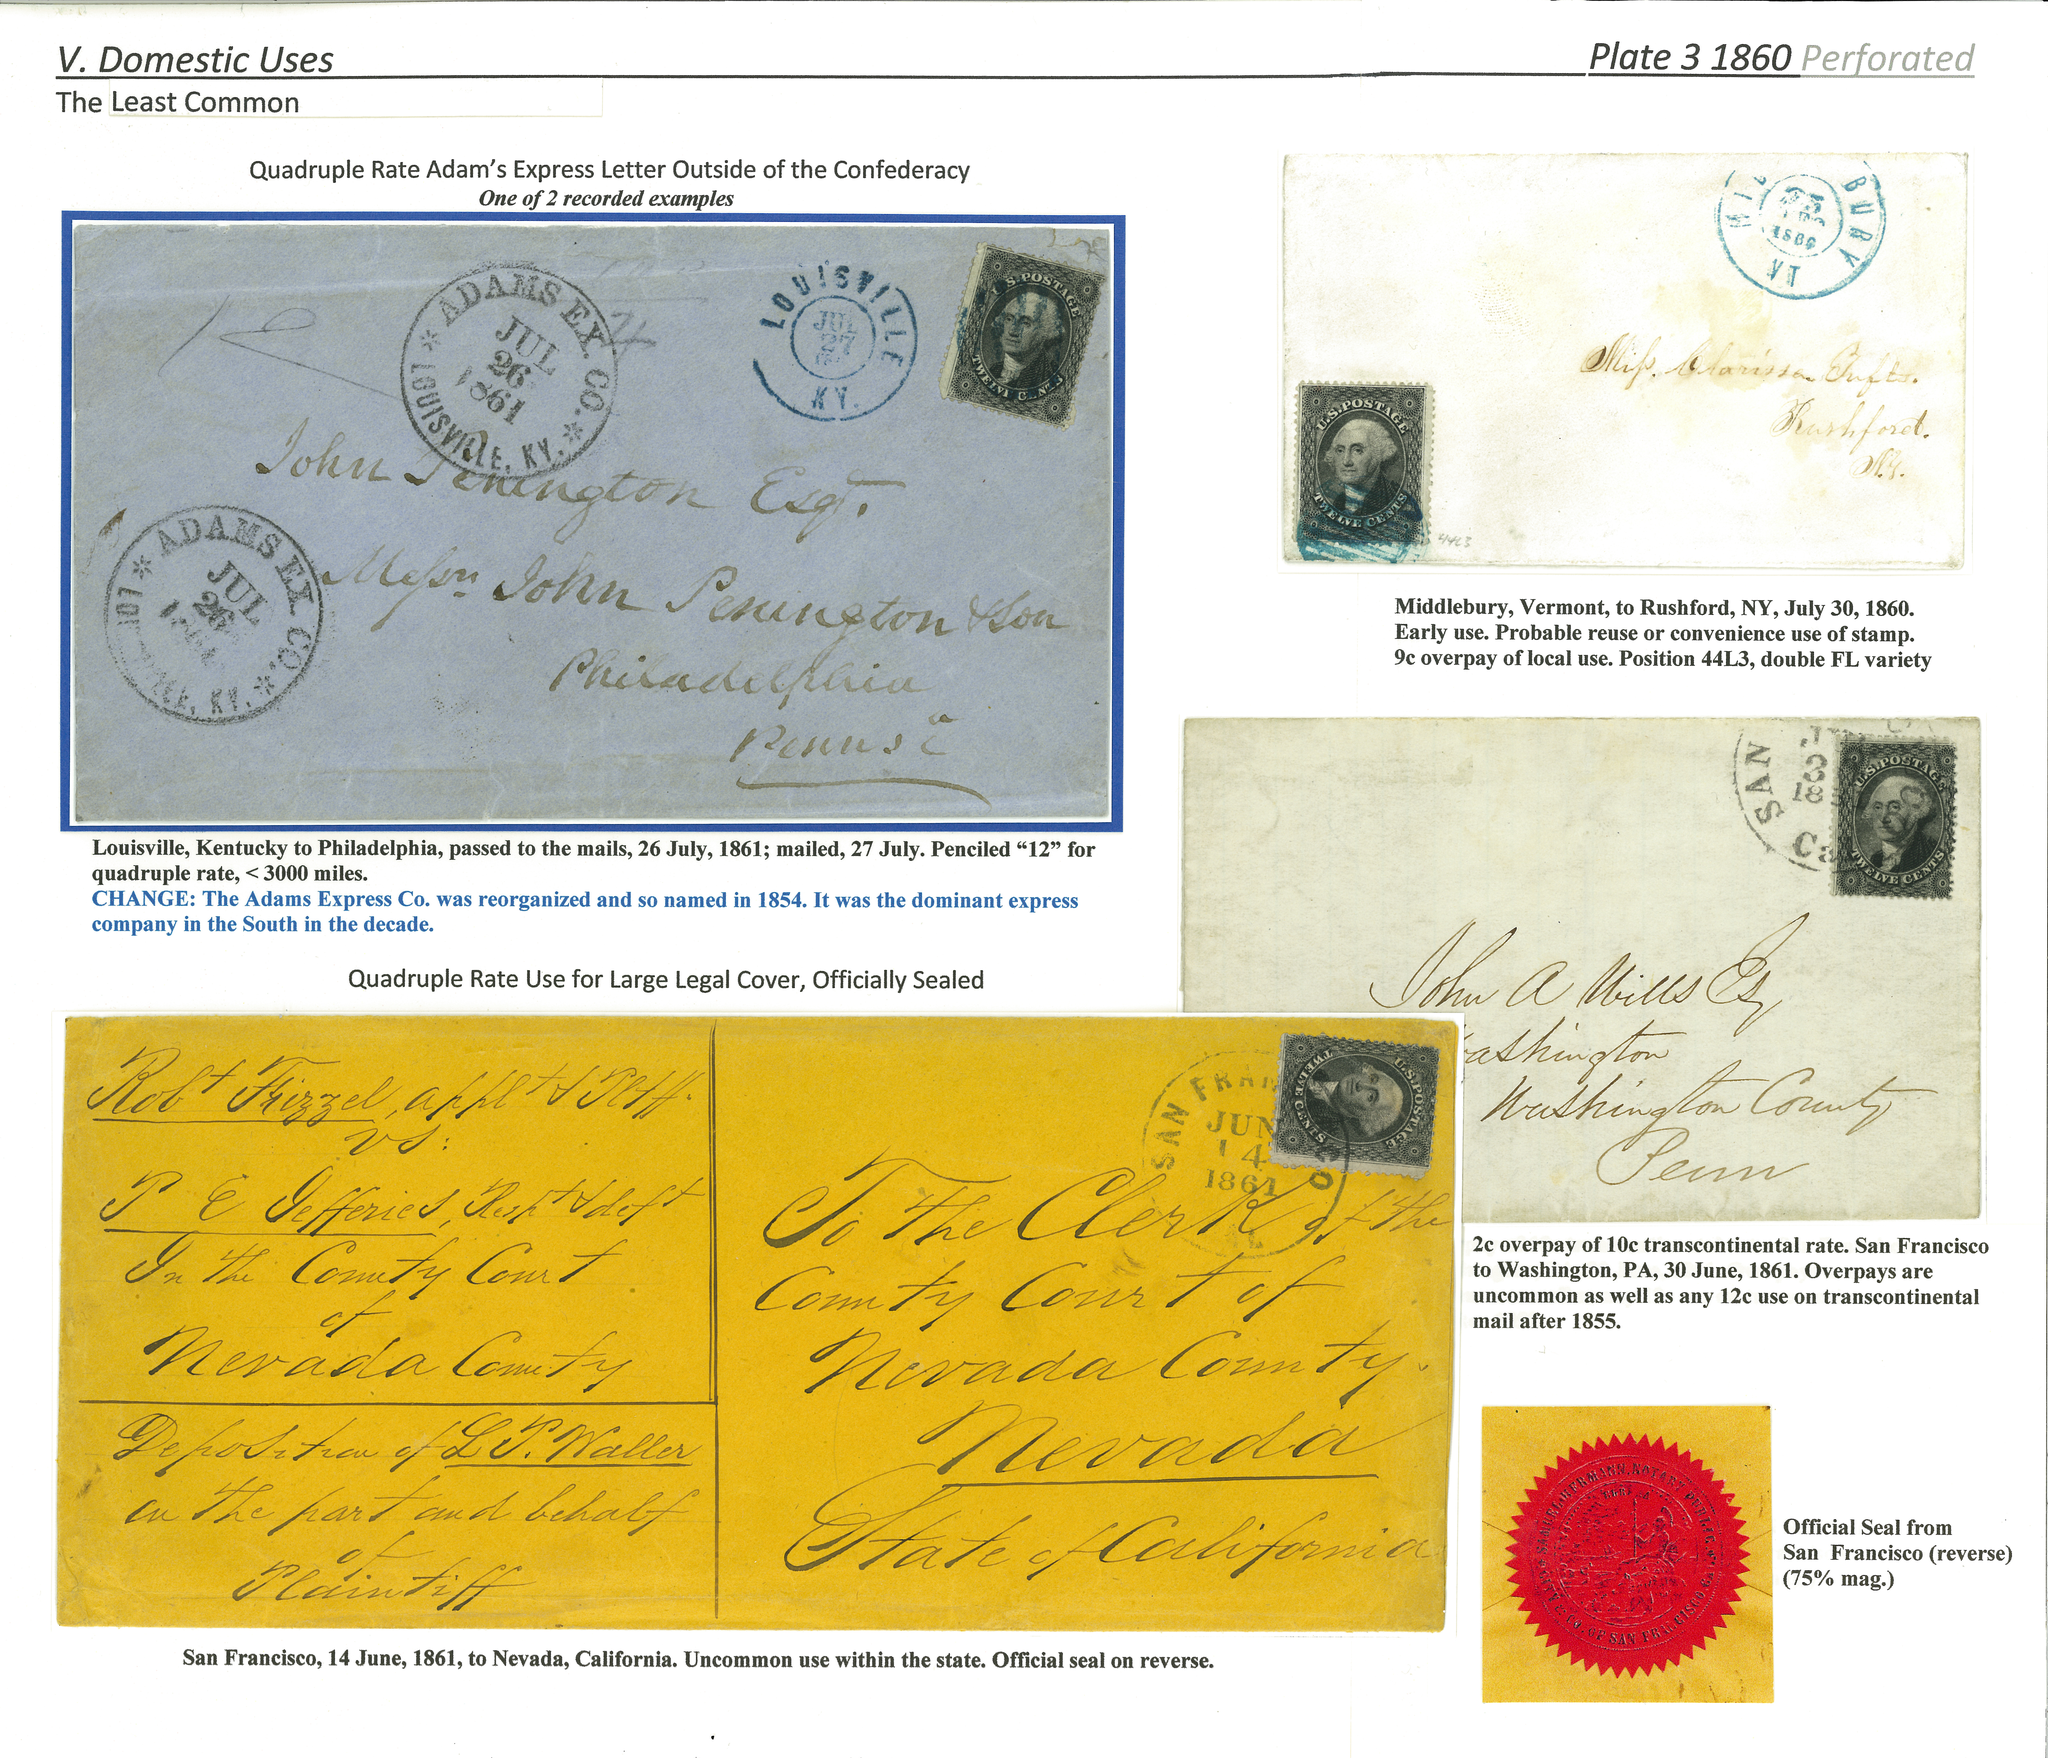 V. Domestic Uses
Plate 3 1860 Perforated
The Least Common
Quadruple Rate Adam's Express Letter Outside of the Confederacy
One of 2 recorded examples
ADAMS EX. CO.
JUL
26
1861
LOUISVILLE, KY.
LOUISVILLE
JUL
27
KY.
U.S. POSTAGE
John Penington Esqr.
Messrs John Penington & Son
Philadelphia
Penns a
ADAMS EX. CO.
JUL
26
Louisville, Kentucky to Philadelphia, passed to the mails, 26 July, 1861; mailed, 27 July. Penciled “12” for
quadruple rate, < 3000 miles.
CHANGE: The Adams Express Co. was reorganized and so named in 1854. It was the dominant express
company in the South in the decade.
BURY
1860
VT
U.S. POSTAGE
TWELVE CENTS
44L3
Miss. Clarissa
Rushford.
N.Y.
Middlebury, Vermont, to Rushford, NY, July 30, 1860.
Early use. Probable reuse or convenience use of stamp.
9c overpay of local use. Position 44L3, double FL variety
SAN
3
18
Ca
U.S. POSTAGE
TWELVE CENTS
John A Wills Esq
ashington
Washington County
Penn
2c overpay of 10c transcontinental rate. San Francisco
to Washington, PA, 30 June, 1861. Overpays are
uncommon as well as any 12c use on transcontinental
mail after 1855.
Quadruple Rate Use for Large Legal Cover, Officially Sealed
Robt Frizzel, applt & Plff.
vs:
P E Jefferies, Respt & deft
In the County Court
of
Nevada County
Deposition of L P. Waller
on the part and behalf
of
Plaintiff
SAN FRAN CO
JUN
14
1861
U.S. POSTAGE
TWELVE CENTS
To The Clerk of the
County Court of
Nevada County.
Nevada
State of California
San Francisco, 14 June, 1861, to Nevada, California. Uncommon use within the state. Official seal on reverse.
SAMUEL HERMANN, NOTARY PUBLIC
CITY & CO. OF SAN FRANCISCO
Official Seal from
San Francisco (reverse)
(75% mag.)